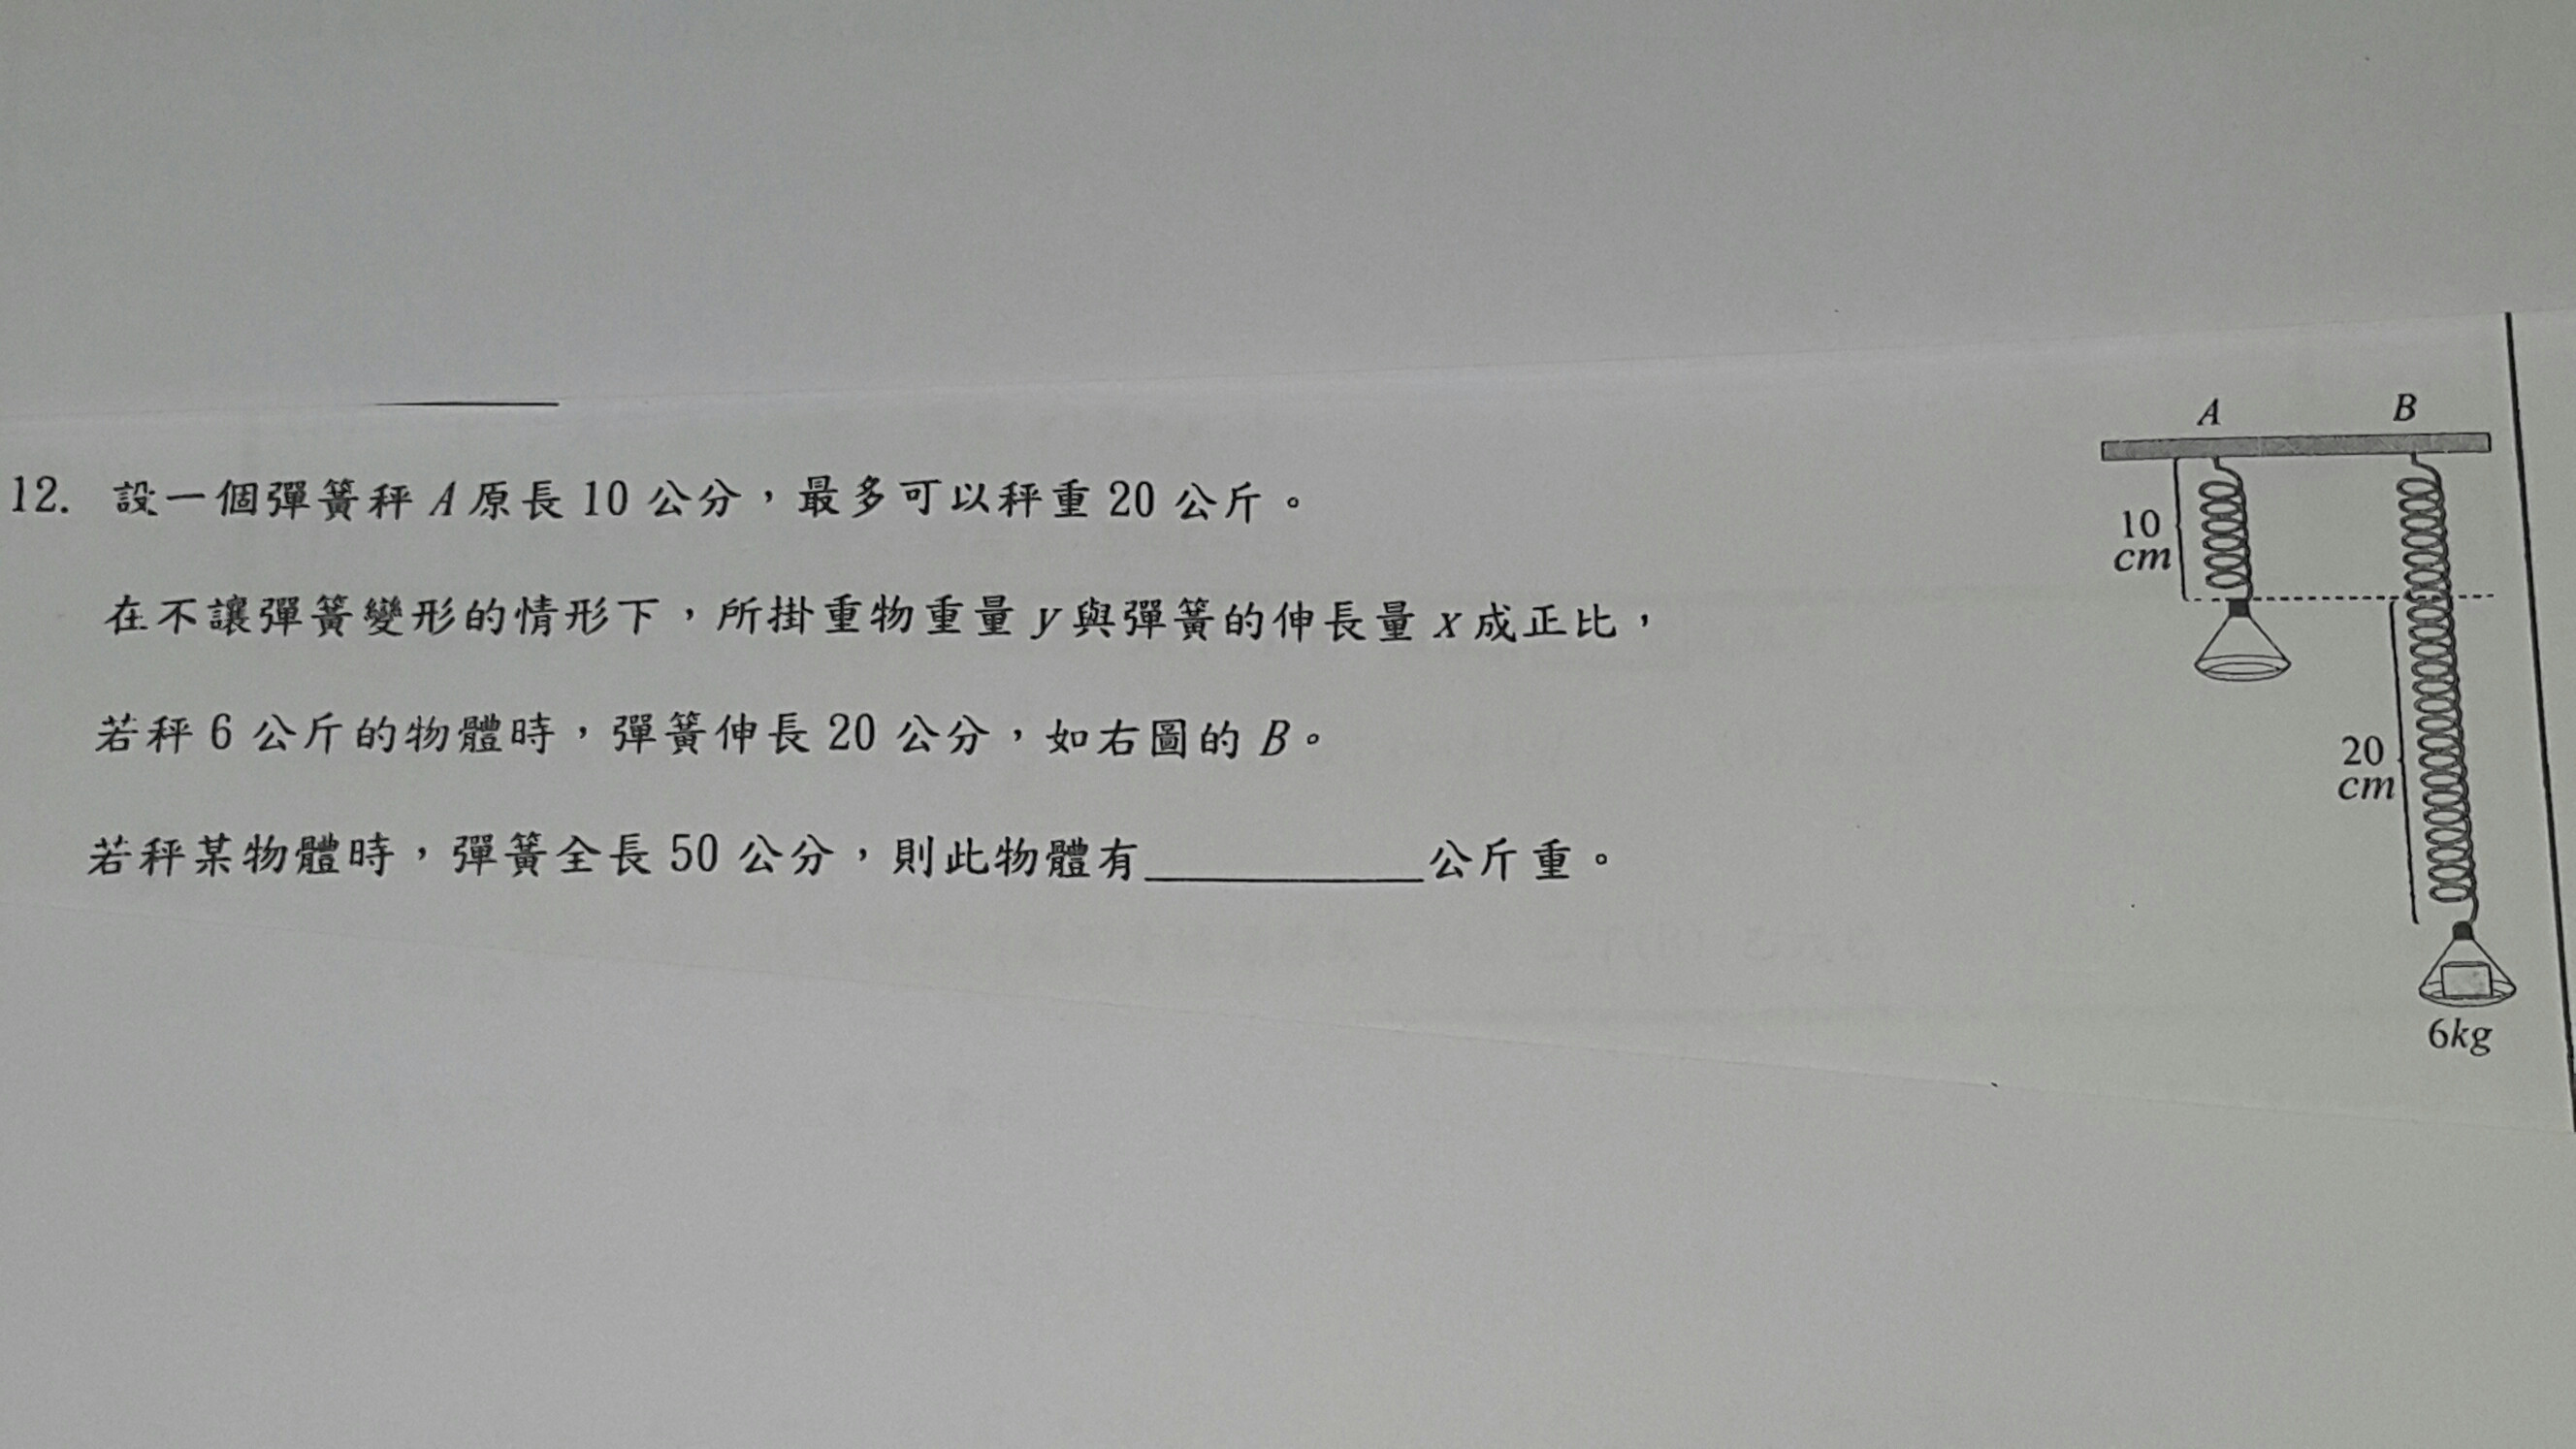 12. 設一個彈簧秤 A 原長 10 公分，最多可以秤重 20 公斤。
在不讓彈簧變形的情形下，所掛重物重量 y 與彈簧的伸長量 x 成正比，
若秤 6 公斤的物體時，彈簧伸長 20 公分，如右圖的 B。
若秤某物體時，彈簧全長 50 公分，則此物體有__________公斤重。
A
B
10
cm
20
cm
6kg